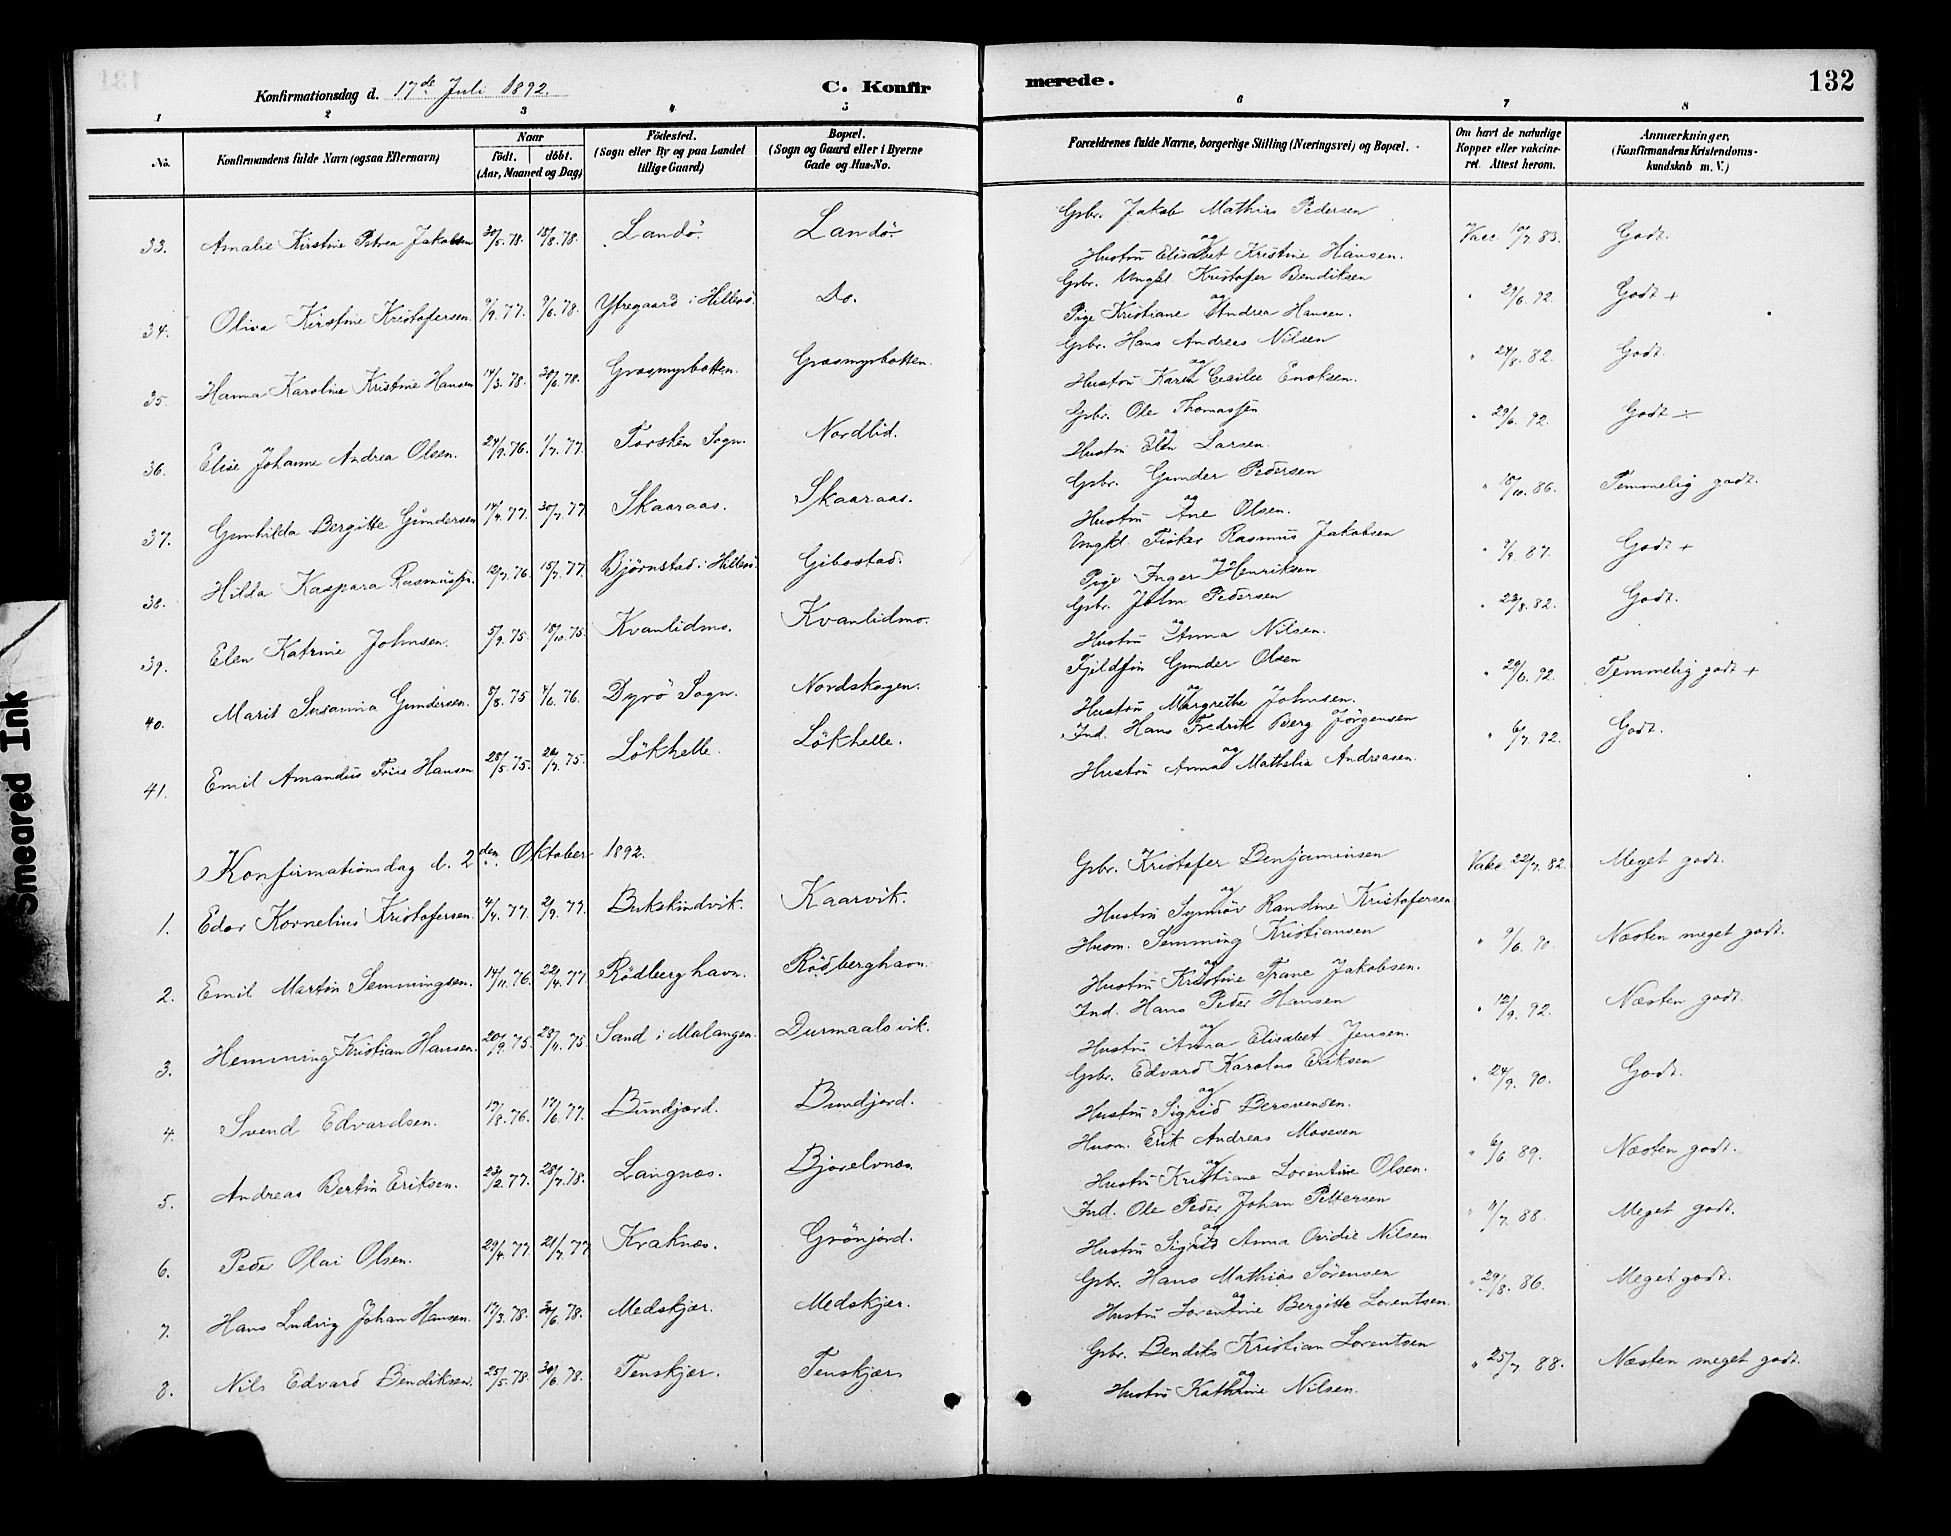 Konfirmationsdag d. 17de Juli 1892. C. Konfirmerede. 132
1 2 3 4 5 6 7 8
No. Konfirmandens fulde Navn (ogsaa Efternavn) Naar födt. döbt. (Aar, Maaned og Dag) Födested. (Sogn eller By og paa Landet tillige Gaard) Bopæl. (Sogn og Gaard eller i Byerne Gade og Hus-No. Forældrenes fulde Navne, borgerlige Stilling (Næringsvei) og Bopæl. Om havt de naturlige Kopper eller vakcineret. Attest herom. Anmærkninger. (Konfirmandens Kristendomskundskab m. V.)
33. Amalie Kirstine Petrea Jakobsen 30/5.78. 18/8.78. Landö. Landö. Gbr. Jakob Mathias Pedersen og Hustru Elisabet Kristine Hansen. Vacc. 10/7.83. Godt.
34. Oliva Kirstine Kristofersen. 9/9.77. 9/6.78. Ytregaard i Hillesö. Do. Gbr. Ungkl. Kristofer Bendiksen og Pige Kristiane Andrea Hansen. " 29/6.92. Godt +
35. Hanna Karoline Kristine Hansen 14/3.78. 30/6.78. Græsmyrbotten. Græsmyrbotten. Gbr. Hans Andreas Nilsen og Hustru Karen Cecilie Enoksen. " 24/8.82. Godt.
36. Elise Johanne Andrea Olsen. 24/9.76. 1/7.77. Torsken Sogn. Nordlid. Gbr. Ole Thomassen og Hustru Elen Larsen. " 29/6.92. Godt ÷
37. Gunhilda Bergitte Gundersen 14/4.77. 30/7.77. Skaaraas. Skaaraas. Gbr. Gunder Pedersen og Hustru Ane Olsen. " 18/10.86. Temmelig godt.
38. Hilda Kaspara Rasmussen. 12/7.76. 15/7.77. Björnstad i Hillesö. Gibostad. Ungkl. Fisker Rasmus Jakobsen og Pige Inger Henriksen " 9/9.87. Godt +
39. Elen Katrine Johnsen. 5/9.75. 18/10.75. Kvanlidmo. Kvanlidmo. Gbr. John Pedersen og Hustru Anna Nilsen. " 23/8.82. Godt.
40. Marit Susanna Gundersen. 5/8.75 4/6.76. Dyrö Sogn. Nordskogen. Fjeldfin Gunder Olsen og Hustru Margrethe Johnsen. " 29/6.92. Temmelig godt +
41. Emil Amandus Friis Hansen 28/5.75. 26/7.75. Lökhelle. Lökhelle. Ind. Hans Fredrik Berg Jörgensen og Hustru Anna Mathelia Andreasen. " 6/7.92. Godt.
Konfirmationsdag d. 2den Oktober 1892.
1. Edor Kornelius Kristofersen. 4/4.77. 2/9.77. Bukskindvik. Kaarvik. Gbr. Kristofer Benjaminsen og Hustru Synnöv Randine Kristofersen Vakc. 22/7.82. Meget godt.
2. Emil Martin Semmingsen. 14/11.76. 22/4.77 Rödberghavn. Rödberghavn. Husm. Semming Kristiansen og Hustru Kristine Trane Jakobsen. " 9/6.90. Næsten meget godt.
3. Hemming Kristian Hansen. 20/9.75. 28/11.75. Sand i Malangen. Durmaalsvik. Ind. Hans Peder Hansen og Hustru Anna Elisabet Jensen. " 12/9.92. Næsten godt.
4. Svend Edvardsen. 19/8.76. 17/6.77. Bundjord. Bundjord. Gbr. Edvard Karolus Eriksen og Hustru Sigrid Bersvendsen. " 24/9.90. Godt.
5. Andreas Bertin Eriksen. 23/2.77. 28/7.78. Langnæs. Bjorelvnæs. Husm. Erik Andreas Mosesen og Hustru Kristiane Lorentine Olsen. " 6/6.89. Næsten godt.
6. Peder Olai Olsen. 29/4.77. 21/7.77 Kraknæs. Grönjord. Ind. Ole Peder Johan Pettersen og Hustru Sigrid Anna Ovidie Nilsen " 11/7.88. Meget godt.
7. Hans Ludvig Johan Hansen. 17/3.78. 30/6.78. Medskjær. Medskjær. Gbr. Hans Mathias Sörensen og Hustru Lorentine Bergitte Lorentsen. " 29/8.86. Meget godt.
8. Nils Edvard Bendiksen. 25/5.78. 30/6.78. Tenskjær. Tenskjær Gbr. Bendiks Kristian Lorentsen og Hustru Kathrine Nilsen. " 25/7.88. Næsten meget godt.
Smeared Ink